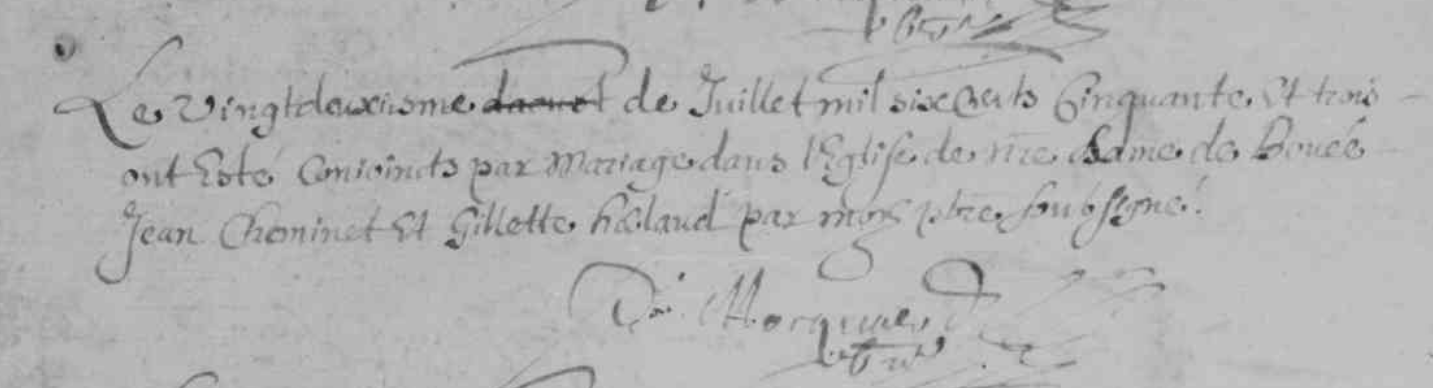 Le vingtdeuxiesme daoust de Juillet mil six Cents Cinquante Et trois
ont Esté Conioincts par Mariage dans l'Eglise de nre dame de Bouéé
Jean Cheminet Et Gillette haland par moy pbre soubsigné